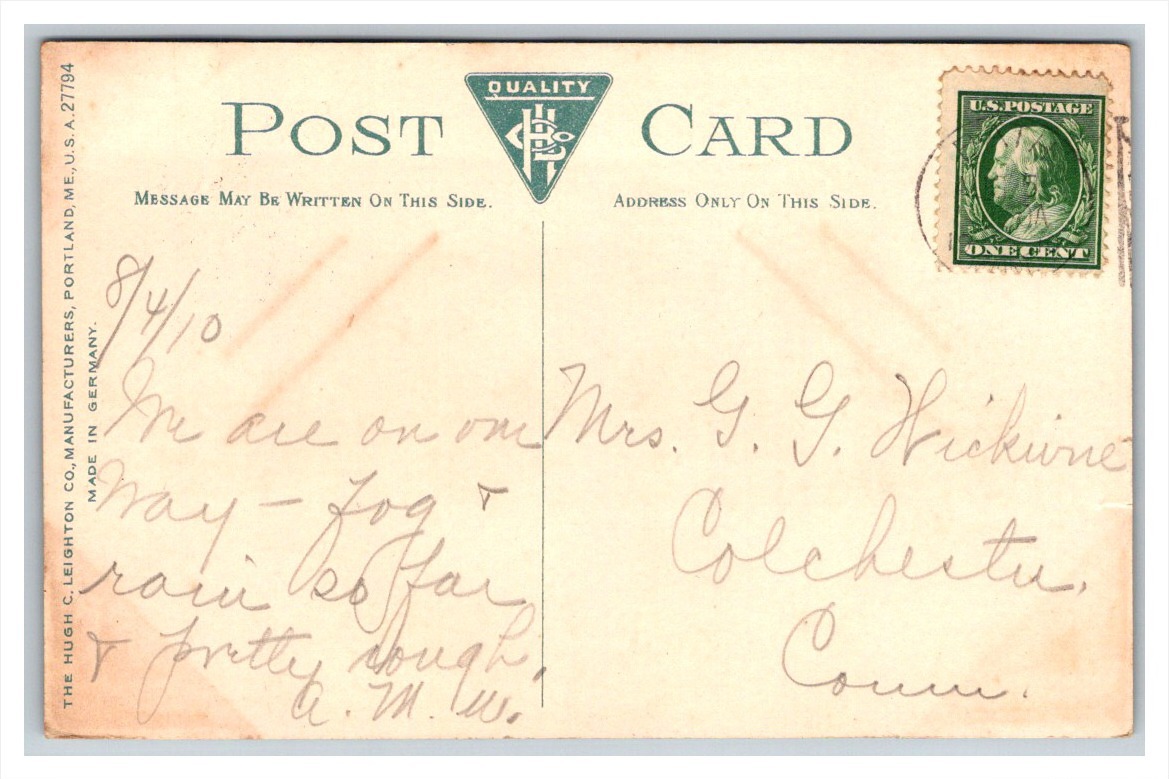 POST CARD
QUALITY
MESSAGE MAY BE WRITTEN ON THIS SIDE.
ADDRESS ONLY ON THIS SIDE.
U.S. POSTAGE
ONE CENT
THE HUGH C. LEIGHTON CO., MANUFACTURERS, PORTLAND, ME., U.S.A. 27794
MADE IN GERMANY.
8/4/10
We are on our
way – fog &
rain so far
& pretty rough.
A. M. W.
Mrs. G. G. Wickwire
Colchester.
Conn.